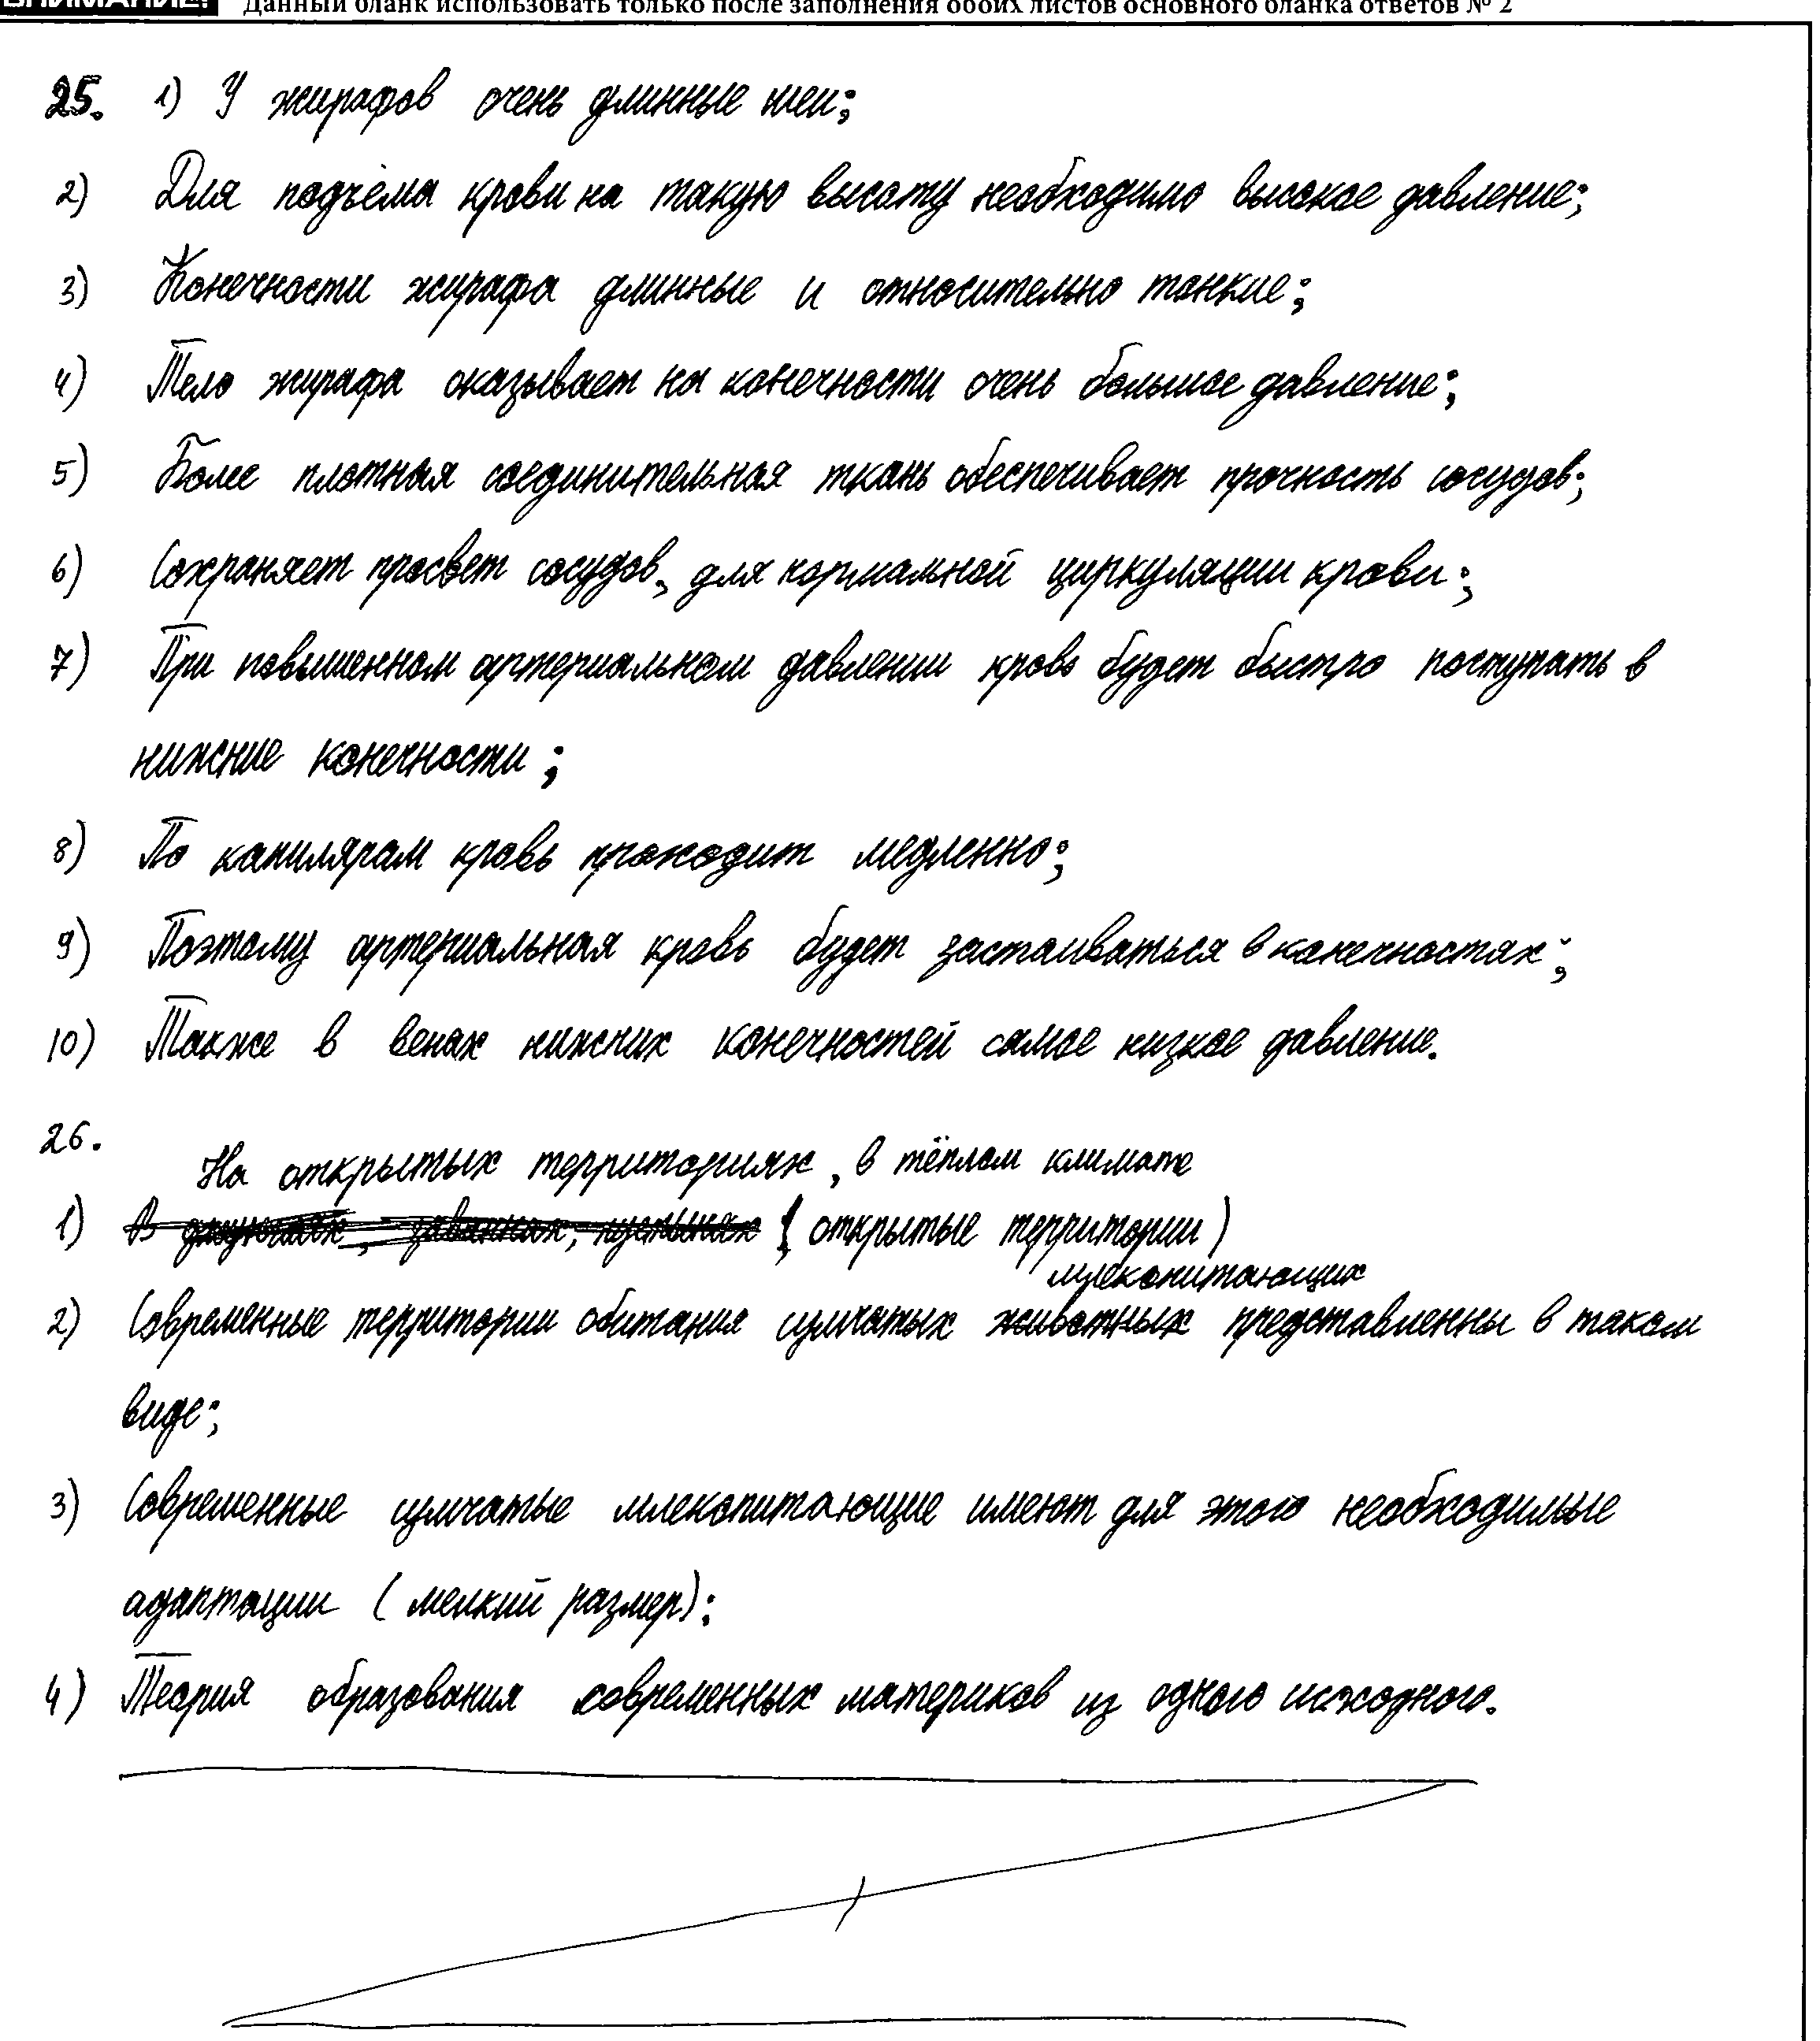 ВНИМАНИЕ! Данный бланк использовать только после заполнения обоих листов основного бланка ответов № 2
25. 1) У жирафов очень длинные шеи;
2) Для подъёма крови на такую высоту необходимо высокое давление;
3) Конечности жирафа длинные и относительно тонкие;
4) Тело жирафа оказывает на конечности очень большое давление;
5) Более плотная соединительная ткань обеспечивает прочность сосудов;
6) Сохраняет просвет сосудов, для нормальной циркуляции крови;
7) При повышенном артериальном давлении кровь будет быстро поступать в
нижние конечности;
8) По капилярам кровь проходит медленно;
9) Поэтому артериальная кровь будет застаиваться в конечностях;
10) Также в венах нижних конечностей самое низкое давление.
26.
На открытых территориях, в тёплом климате
1) В саваннах, пустынях (открытые территории)
млекопитающих
2) Современные территории обитания сумчатых животных представленны в таком
виде;
3) Современные сумчатые млекопитающие имеют для этого необходимые
адаптации (мелкий размер);
4) Теория образования современных материков из одного исходного.